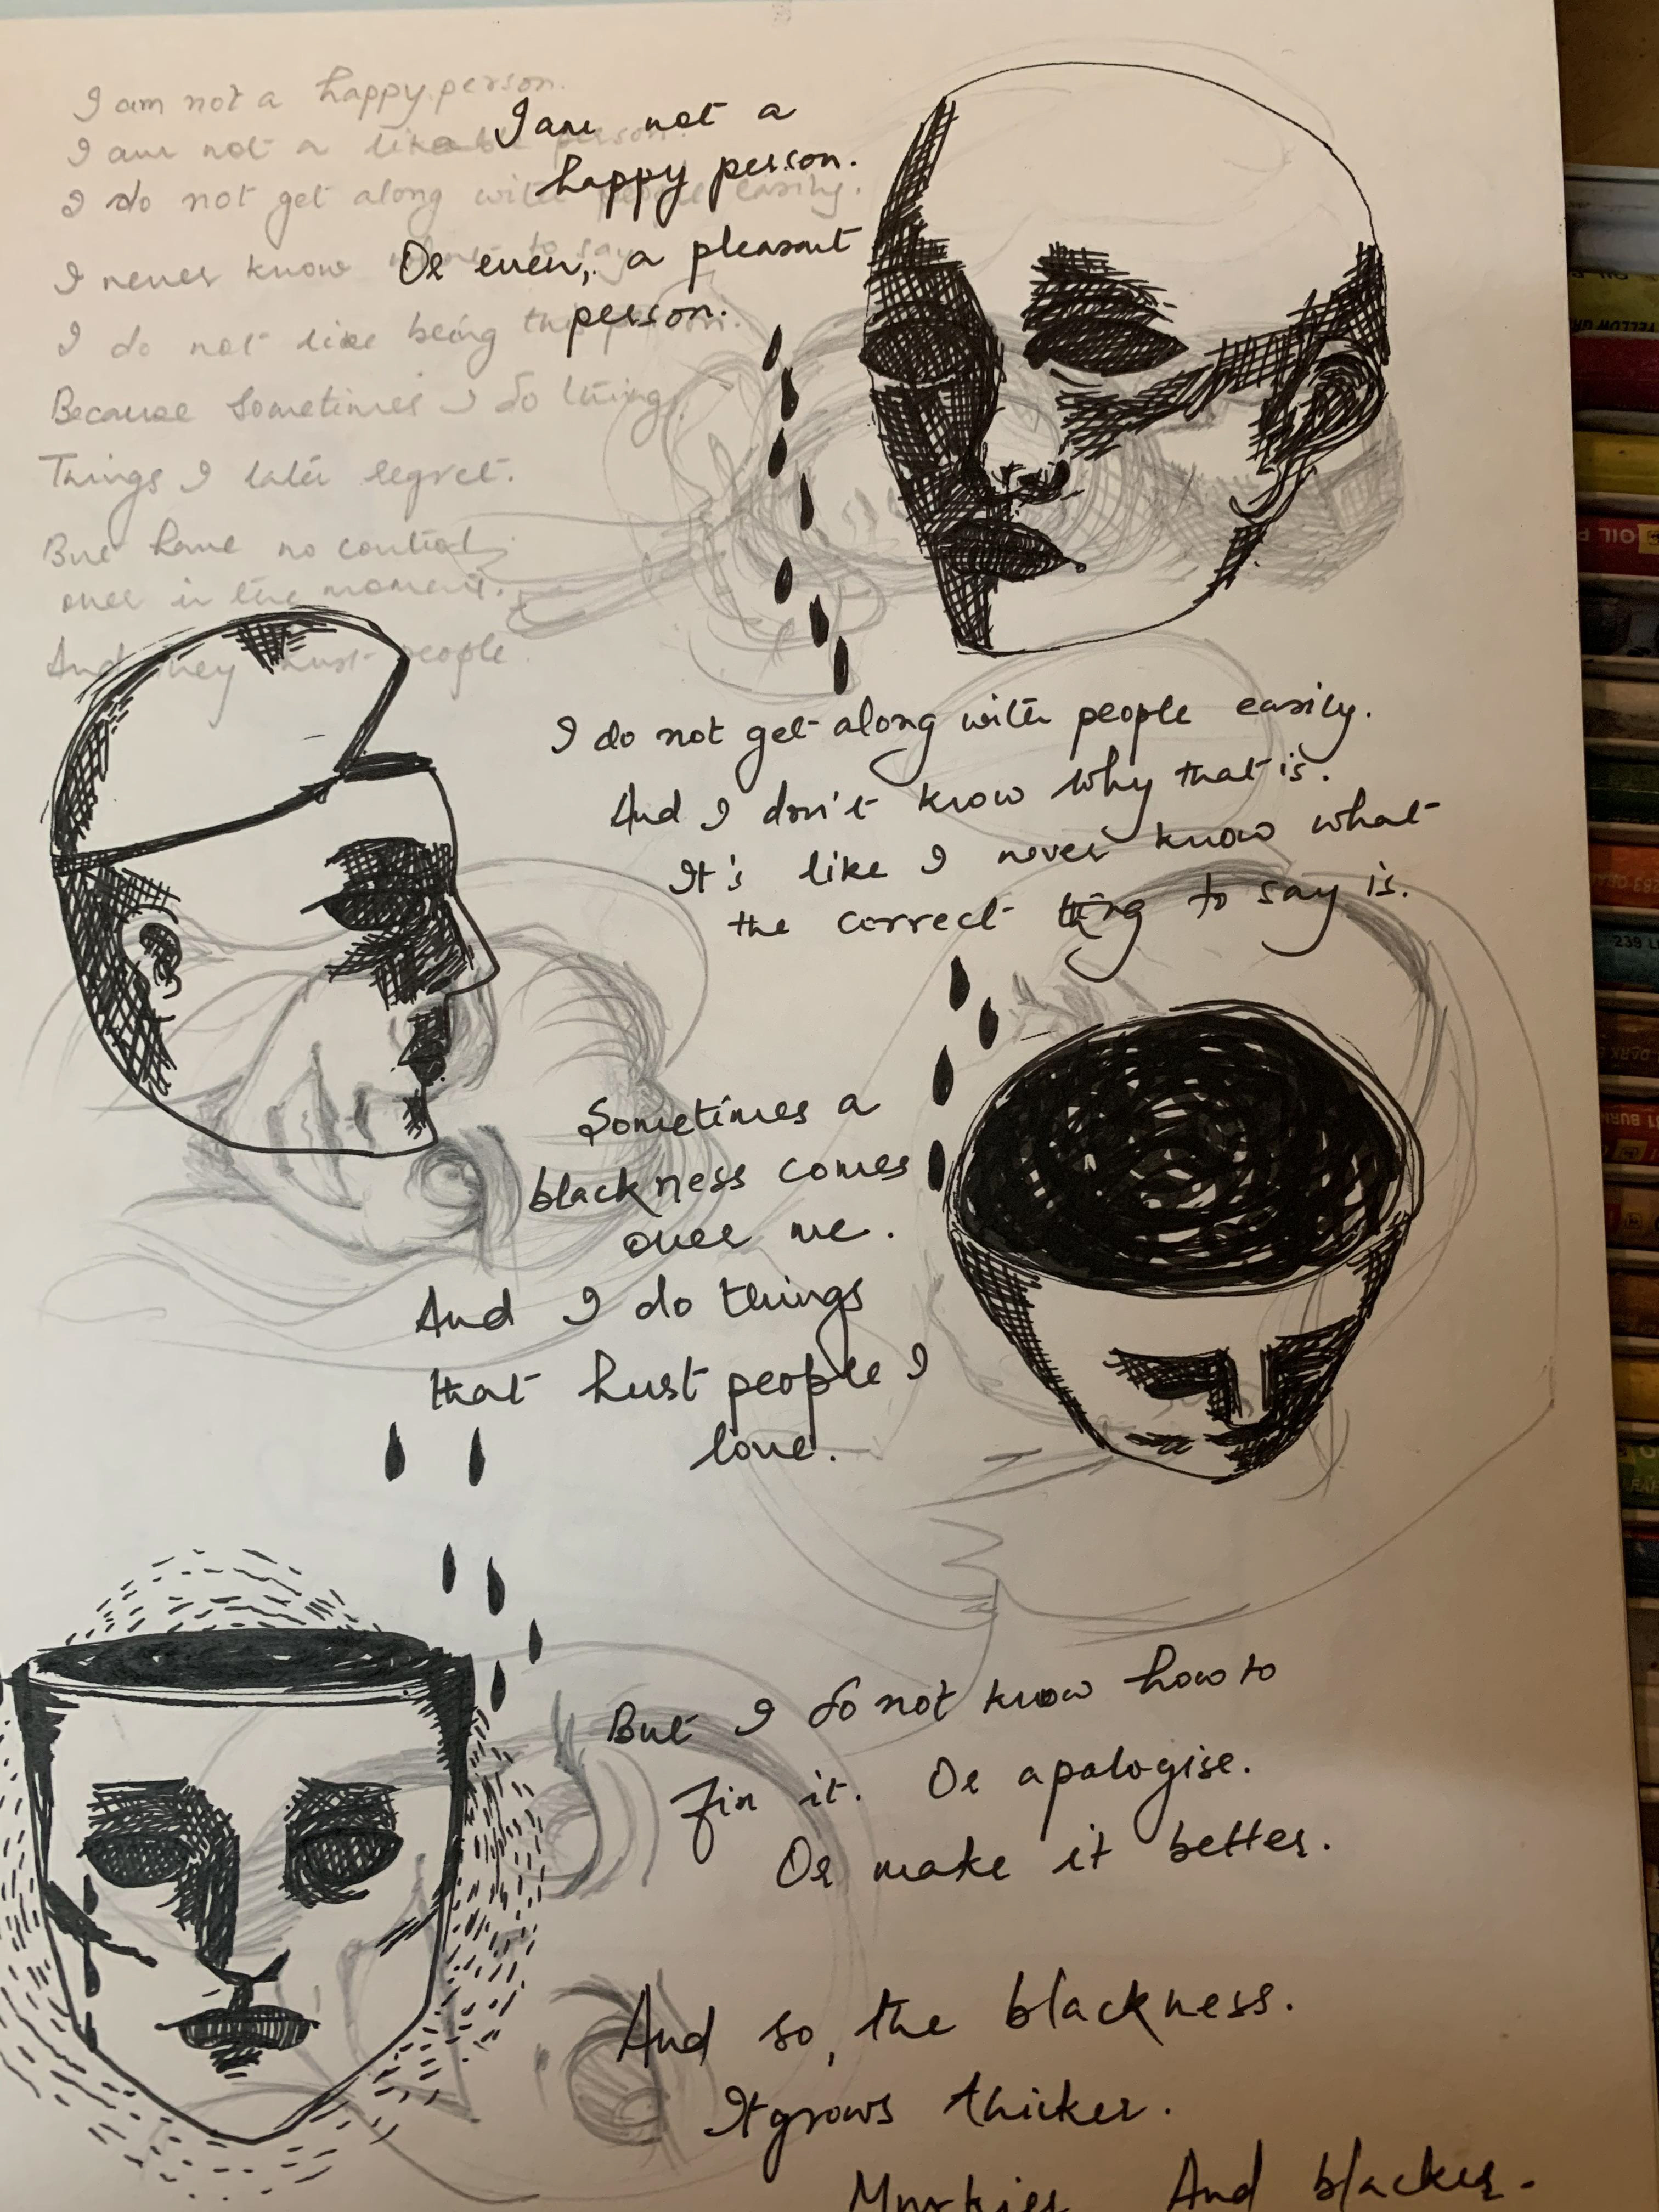 I am not a happy person.
I am not a person.
I do not get along with people easily.
I never know to say
I do not like being this person.
Because sometimes I do things.
Things I later regret.
But have no control
over in the moment.
And they hurt people.
I am not a
happy person.
Or even, a pleasant
person.
I do not get along with people easily.
And I don't know why that is.
It's like I never know what
the correct thing to say is.
Sometimes a
blackness comes
over me.
And I do things
that hurt people I
love.
But I do not know how to
fix it. Or apologise.
Or make it better.
And so, the blackness.
It grows thicker.
Murkier. And blacker.
YELLOW
OIL P
239
DARK
BURN